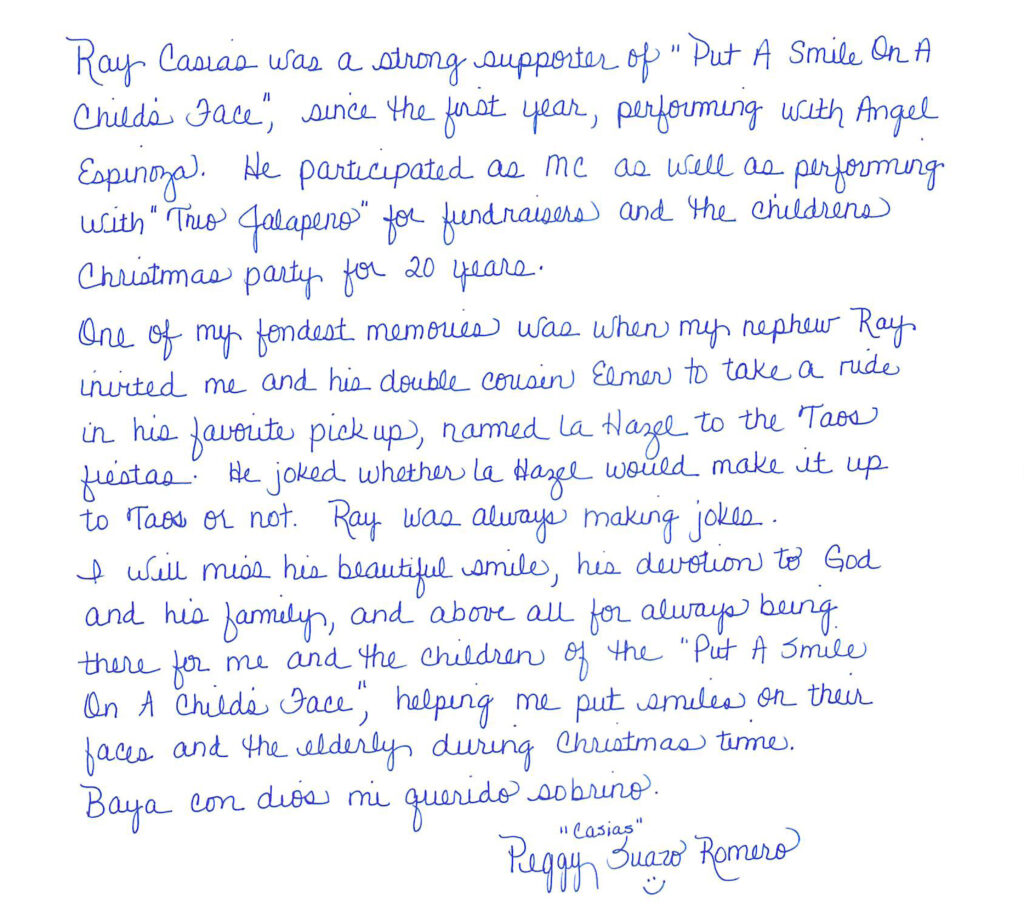 Ray Casias was a strong supporter of "Put A Smile On A
Child's Face", since the first year, performing with Angel
Espinoza. He participated as MC as well as performing
with "Trio Jalapeno" for fundraisers and the childrens
Christmas party for 20 years.
One of my fondest memories was when my nephew Ray
invited me and his double cousin Elmer to take a ride
in his favorite pick up, named La Hazel to the Taos
fiestas. He joked whether La Hazel would make it up
to Taos or not. Ray was always making jokes.
I will miss his beautiful smile, his devotion to God
and his family, and above all for always being
there for me and the children of the "Put A Smile
On A Child's Face", helping me put smiles on their
faces and the elderly during Christmas time.
Baya con dios mi querido sobrino.
"Casias"
Peggy Suazo Romero